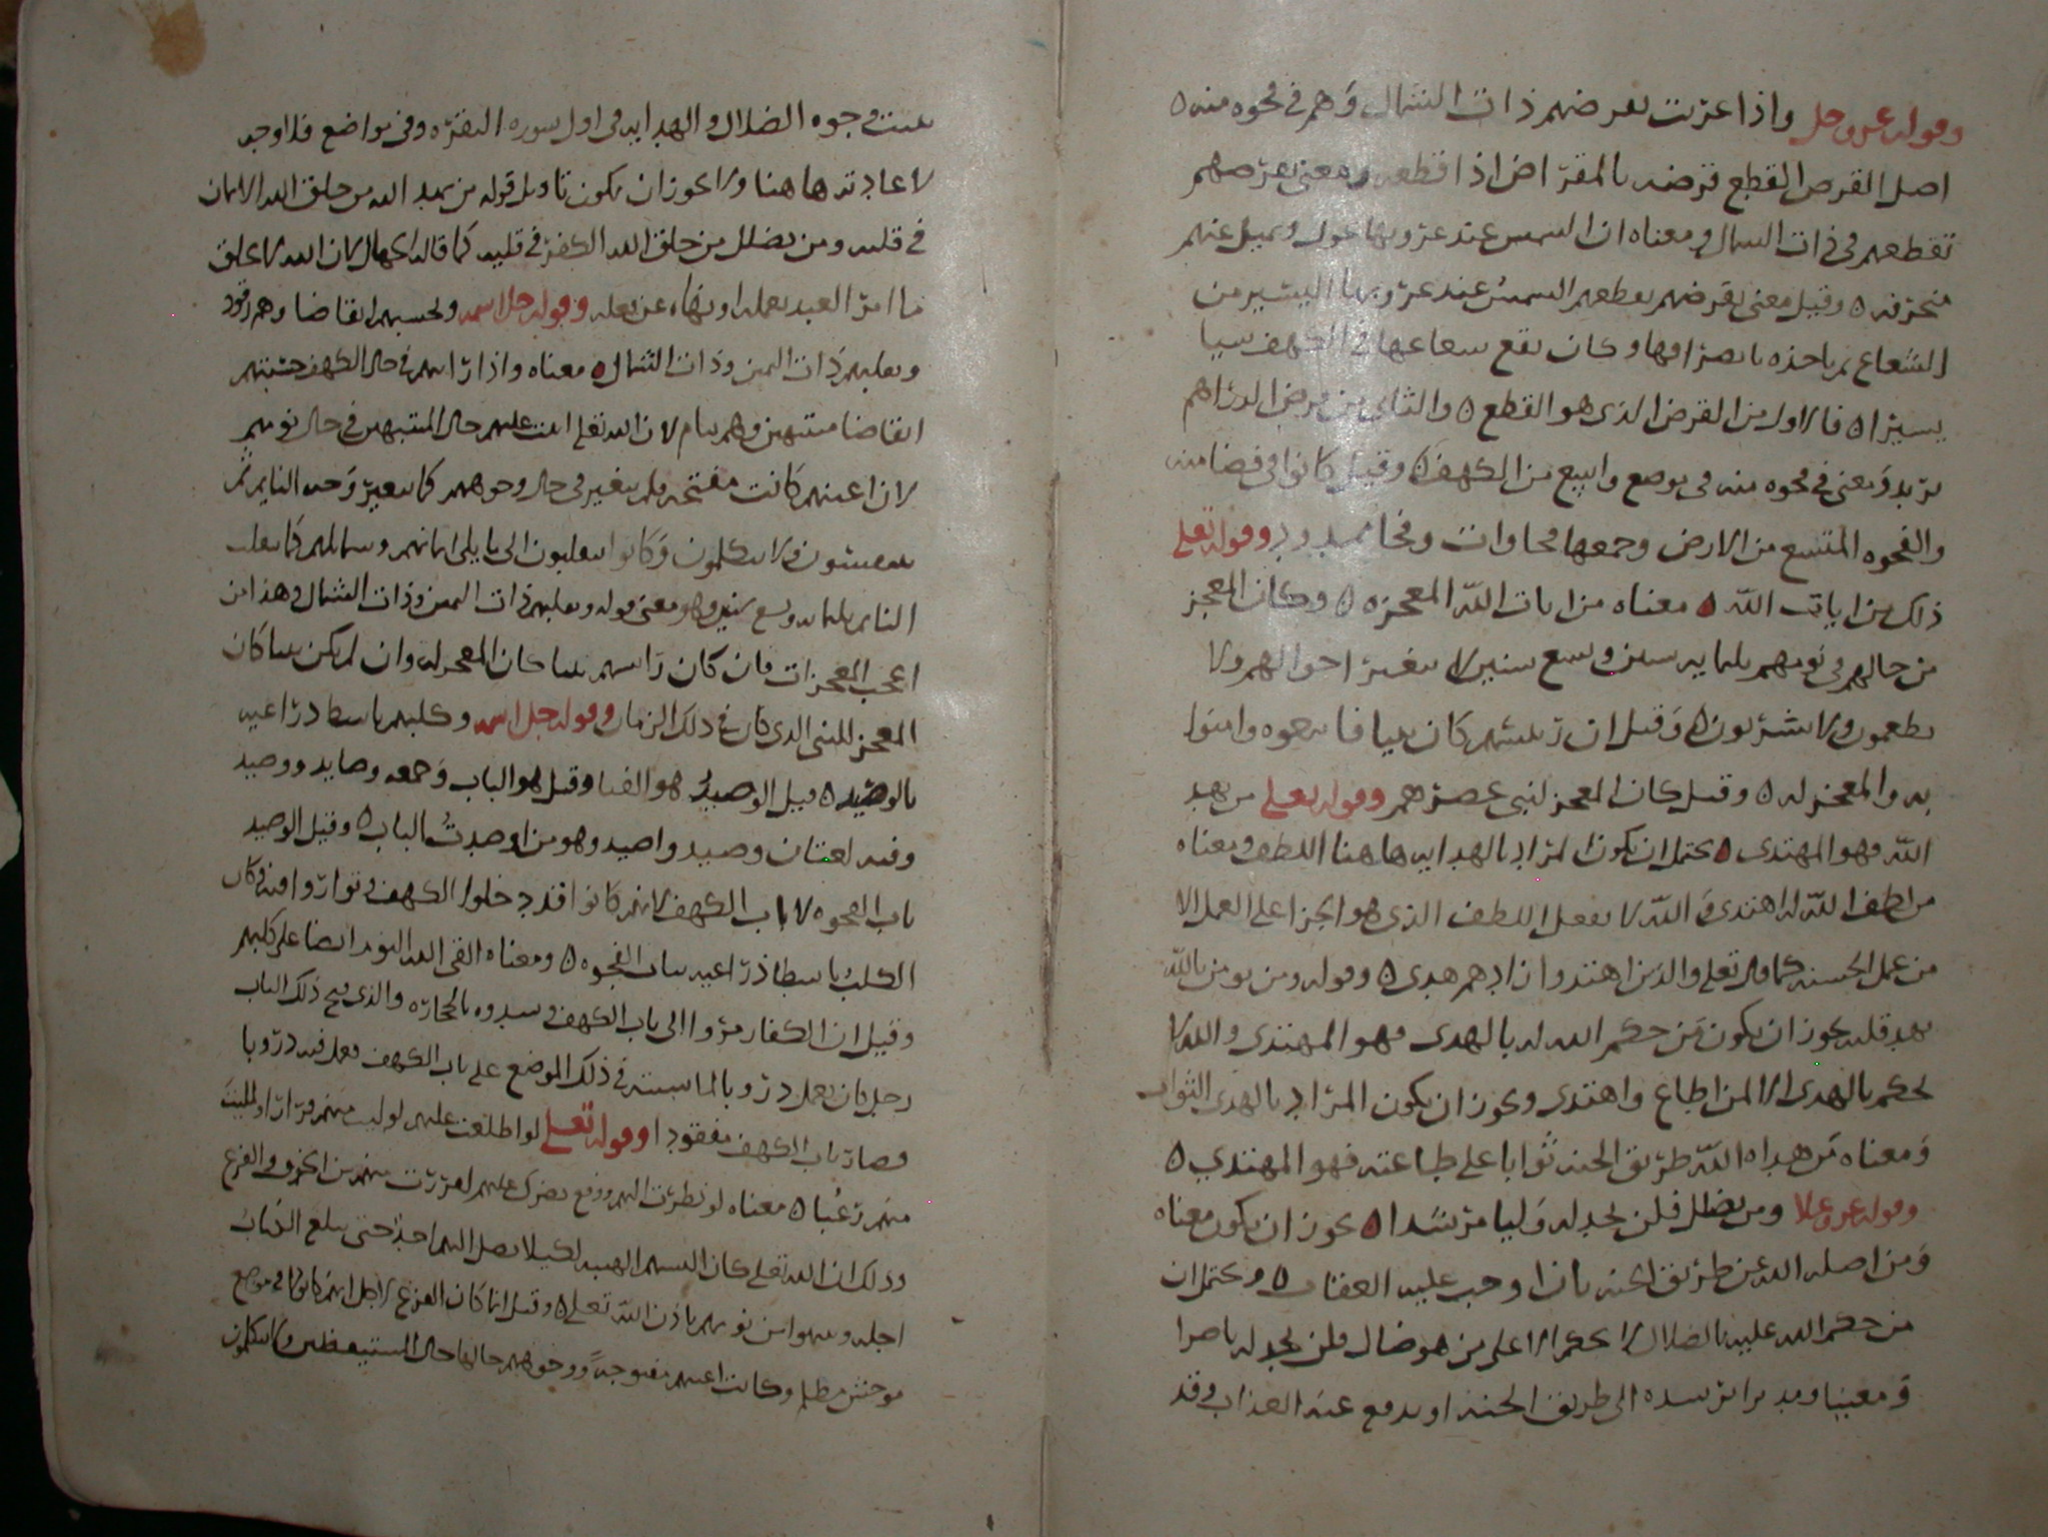 وقوله عز وجل واذا غربت تقرضهم ذات الشمال وهم في فجوه منه ه
اصل القرض القطع قرضه بالمقراض اذا قطعه ومعنى تقرضهم
تقطعهم في ذات الشمال ومعناه ان الشمس عند غروبها تميل عنهم
منحرفه ه وقيل معنى تقرضهم تعطيهم الشمس عند غروبها اليسير من
الشعاع ثم ياخذه بانصرافها وكان يقع شعاعها في الكهف شيا
يسيرا ه فالاول من القرض الذي هو القطع ه والثاني من قرض الدراهم
يريد ومعنى في فجوه منه في موضع واسع من الكهف ه وقيل كانوا في فضا منه
والفجوه المتسع من الارض وجمعها فجاوات وفجا ممدود وقوله تعلى
ذلك من ايات الله ه معناه من ايات الله المعجزه ه وكان المعجز
من حالهم في نومهم ثلثمايه سنين وتسع سنين لا تتغير احوالهم ولا
يطعمون ولا يشربون ه وقيل ان رئيسهم كان نبيا فاتبعوه وامنوا
به والمعجز له ه وقيل كان المعجز لنبي عصرهم وقوله تعلى من يهد
الله فهو المهتدي ه يحتمل ان يكون المراد بالهدايه هاهنا اللطف ومعناه
من لطف الله له اهتدى والله لا يفعل اللطف الذي هو الجزا على العمل الا
من عمل الحسنه كما قال تعلى والذين اهتدوا زادهم هدى ه وقوله ومن يومن بالله
يهد قلبه يجوز ان يكون من حكم الله له بالهدى فهو المهتدى والله لا
يحكم بالهدى الا لمن اطاع واهتدى ويجوز ان يكون المراد بالهدى الثواب
ومعناه من هداه الله طريق الجنه ثوابا على طاعته فهو المهتدي ه
وقوله عز وعلا ومن يضلل فلن تجد له وليا مرشدا ه يجوز ان يكون معناه
ومن اضله الله عن طريق الجنه بان اوجب عليه العقاب ه ويحتمل ان
من حكم الله عليه بالضلال لا يحكم الا على من هو ضال فلن تجد له ناصرا
ومعينا ومدبرا يرشده الى طريق الجنه او يدفع عنه العذاب وقد
بينت وجوه الضلال والهدايه في اول سوره البقره وفي مواضع فلا وجه
لاعادتها هاهنا ولا يجوز ان يكون تاويل قوله من يهد الله من خلق الله الايمان
في قلبه ومن يضلل من خلق الله الكفر في قلبه كما قاله الجهال لان الله لا يخلق
ما امر العبد بفعله او نهاه عن فعله وقوله جل اسمه وتحسبهم ايقاضا وهم رقود
ونقلبهم ذات اليمين وذات الشمال ه معناه واذا رايتهم في حال الكهف حسبتهم
ايقاضا منتبهين وهم نيام لان الله تعلى اثبت عليهم حال المنتبهين في حال نومهم
لان اعينهم كانت مفتحه ولم يتغير في حال وجوههم كما يتغير وجه النايم ثم
يتنفسون ولا يتكلمون وكانوا ينقلبون الى ما يلي ايمانهم وشمايلهم كما ينقلب
النايم ثلثمايه وتسع سنين وهو معنى قوله ونقلبهم ذات اليمين وذات الشمال وهذا من
اعجب المعجزات فان كان رئيسهم نبيا كان المعجز له وان لم يكن نبيا كان
المعجز للنبي الذي كان في ذلك الزمان وقوله جل اسمه وكلبهم باسط ذراعيه
بالوصيد ه قيل الوصيد هو الفنا وقيل هو الباب وجمعه وصايد ووصيد
وفيه لغتان وصيد واصيد وهو من اوصدت الباب ه وقيل الوصيد
باب الفجوه لا باب الكهف لانهم كانوا قد دخلوا الكهف وتواروا فيه وكان
الكلب باسطا ذراعيه بباب الفجوه ه ومعناه القى الله النوم ايضا على كلبهم
وقيل ان الكفار مروا الى باب الكهف وسدوه بالحجاره والذي فتح ذلك الباب
رجل كان يعمل دروبا لماشيته في ذلك الموضع على باب الكهف فعمل فيه دروبا
فصار باب الكهف مفقودا وقوله تعلى لو اطلعت عليهم لوليت منهم فرارا ولملئت
منهم رعبا ه معناه لو نظرت اليهم ووقع بصرك عليهم لفررت منهم من الخوف والفزع
وذلك ان الله تعلى كان البسهم الهيبه لكيلا يصل اليهم احد حتى يبلغ الكتاب
اجله وينتبهوا من نومهم باذن الله تعلى ه وقيل انما كان الفزع لاجل انهم كانوا في موضع
موحش مظلم وكانت اعينهم مفتوحه ووجوههم حالها حال المستيقظين ولا يتكلمون